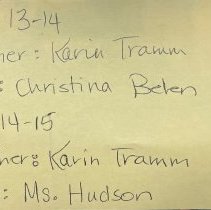 13-14
ner: Karin Tramm
: Christina Belen
14-15
ner: Karin Tramm
: Ms. Hudson